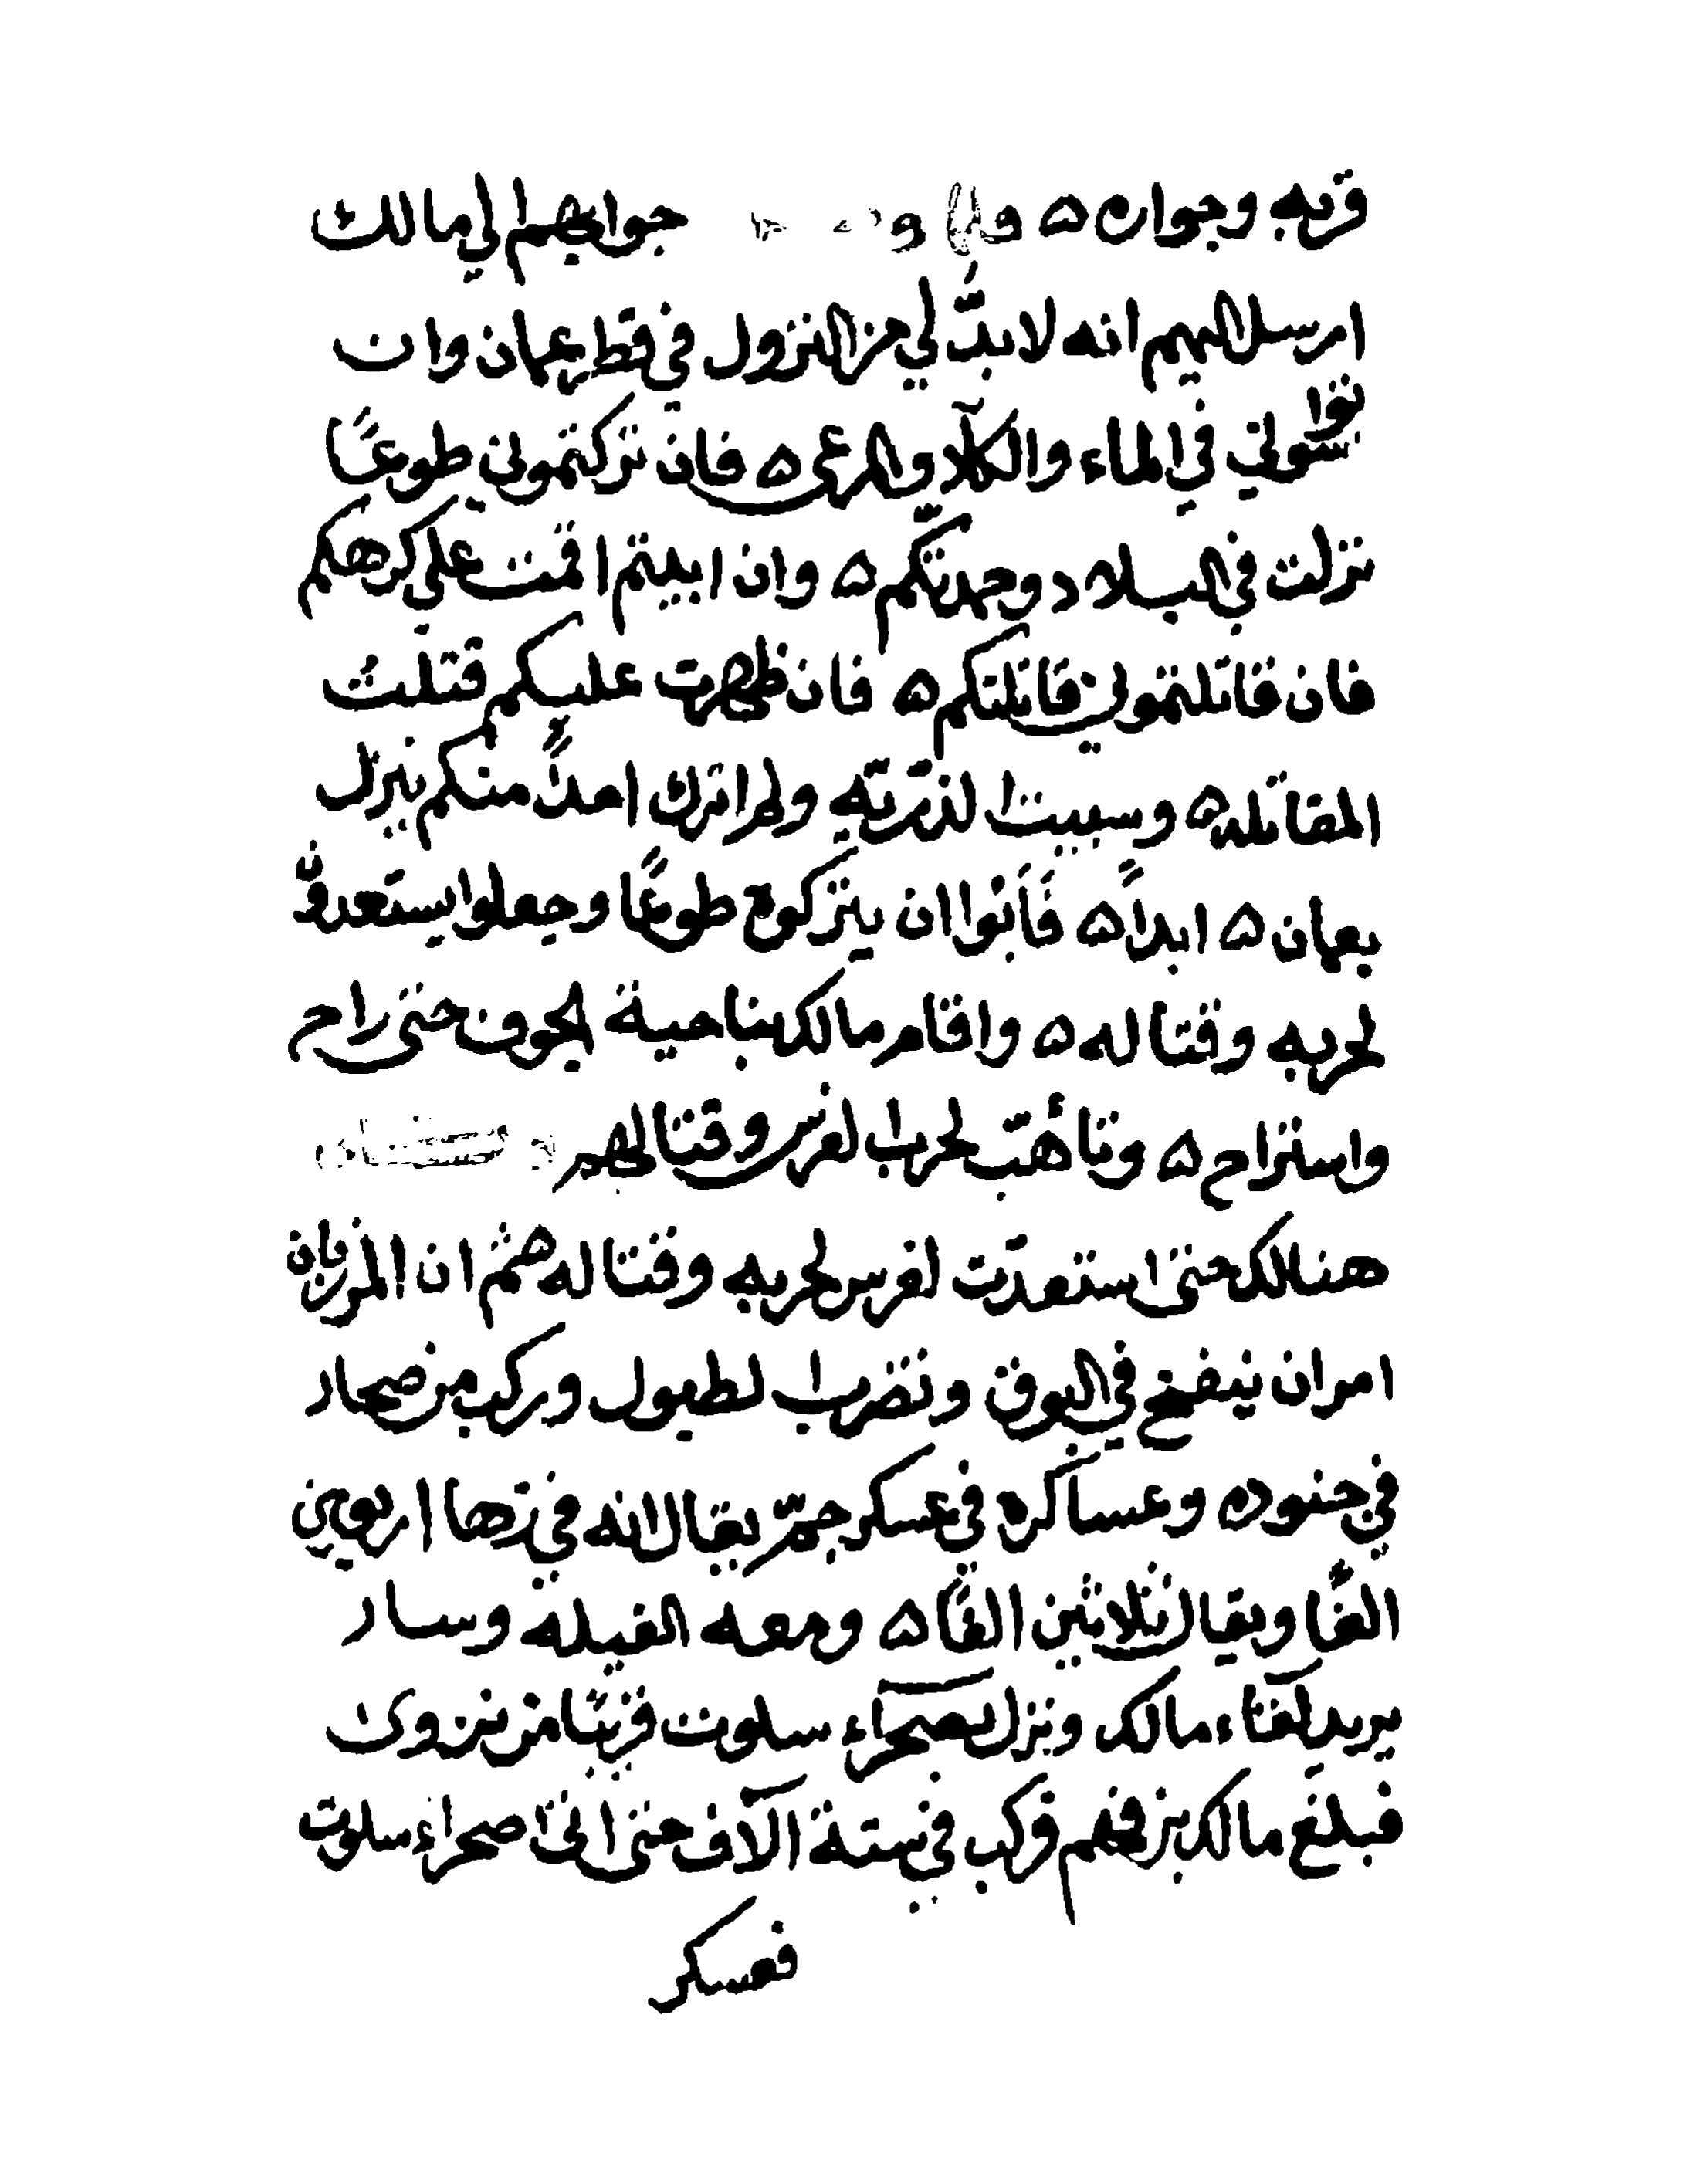 قربه وجواره ۵ جوابهم الي مالك
ارسل اليهم انه لا بدّ لي من النزول في قطر عمان وان
تواسوني في الماء والكلآ والمرعى ۵ فان تركتموني طوعًا
نزلت في البلاد وحمدتكم ۵ وان ابيتم اقمت على كرهكم
فان قاتلتموني قاتلتكم ۵ فان ظهرت عليكم قتلت
المقاتله ۵ وسبيت الذرّيّه ولم اترك احداً منكم ينزل
بعمان ۵ ابداً ۵ فَأبَوا ان يتركوه طوعًا وجعلوا يستعدون
لحربه وقتاله ۵ واقام مالك بناحية الجوف حتى راح
واستراح ۵ وتأهّب لحرب الفرس وقتالهم
هنالك حتى استعدّت الفرس لحربه وقتاله ثم ان المرزبان
امر ان ينفخ في البوق وتضرب الطبول وركب من صحار
في جنوده وعساكره في عسكر جمّ يقال انه في زها اربعين
الفًا ويقال ثلاثين الفًا ۵ ومعه الفيله وسار
يريد لقآء مالك ونزل بصحرآء سلوت قريبًا من نزوى
فبلغ مالك بن فهم فركب في ستة آلاف حتى اتى صحراء سلوت
فعسكر